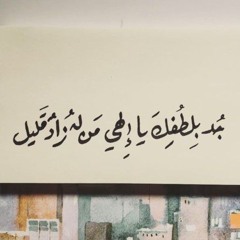 جُد بِلُطْفِكَ يا إِلٰهي مَن لهُ زادٌ قَليل